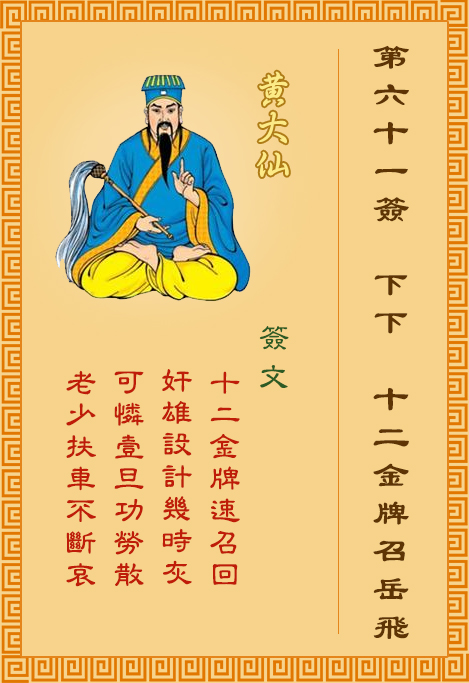 第六十一簽 下下 十二金牌召岳飛
黄大仙
簽文
十二金牌速召回
奸雄設計幾時灰
可憐壹旦功勞散
老少扶車不斷哀